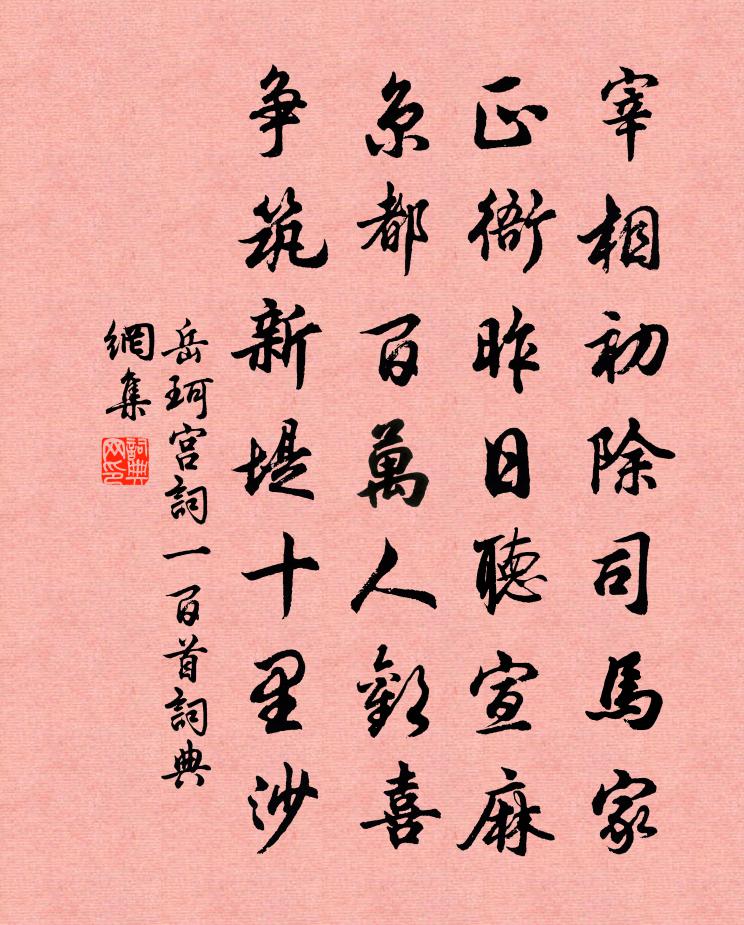 宰相初除司馬家
正衙昨日聽宣麻
京都百萬人歡喜
争筑新堤十里沙
岳珂宫詞一百首詞典
網集
詞典
网印